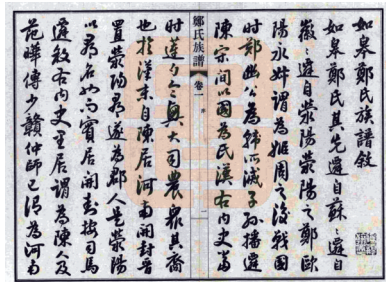 如皋鄭氏族譜敘
如皋鄭氏其先遷自蘇蘇之遷自
徽遷自滎陽滎陽之鄭歐
陽永叔謂為姬周之後戰國
時鄭幽公為韓所滅子孫播遷
陳宋間以國為氏漢右內史當
鄭氏族譜 卷一
時遷今奧大司農眾其裔
也於漢末自陳居河南開封晉
置滎陽郡遂為郡人是滎陽
以為名如向賓居開封按司馬
遷敘右內史里居謂為陳人及
范曄傳少贛仲師已謂為河南